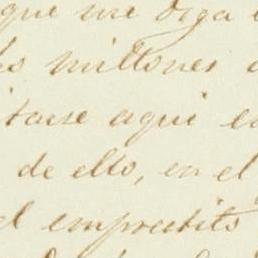 que me diga
los millones
itarse aqui en
de ello, en el
el emprestito